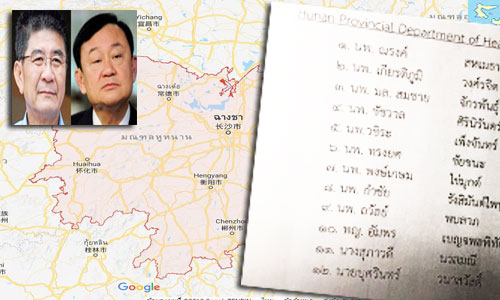 Yichang
宜昌市
ฉางเต๋อ
常德市
ฉางชา
长沙市
มณฑลหูหนาน
Huaihua
怀化市
Hengyang
衡阳市
Chenzhou
郴州市
กุ้ยหลิน
桂林市
Google
Hunan Provincial Department of
๑. นพ. ณรงค์
๒. นพ. เกียรติภูมิ วงศ์รจิต
๓. นพ. มล. สมชาย จักรพันธุ์
๔. นพ. ชัชวาล
๕. นพ. วชิระ เพ็งจันทร์
๖. นพ. ทรงยศ ชัยชนะ
๗. นพ. พงษ์เกษม ไข่มุกด์
๘. นพ. กำชัย
๙. นพ. ถวัลย์ พบลาภ
๑๐. พญ. อัมพร
๑๑. นางสุภาวดี นวลมณี
๑๒. นายบุศรินทร์ วนาสวัสดิ์